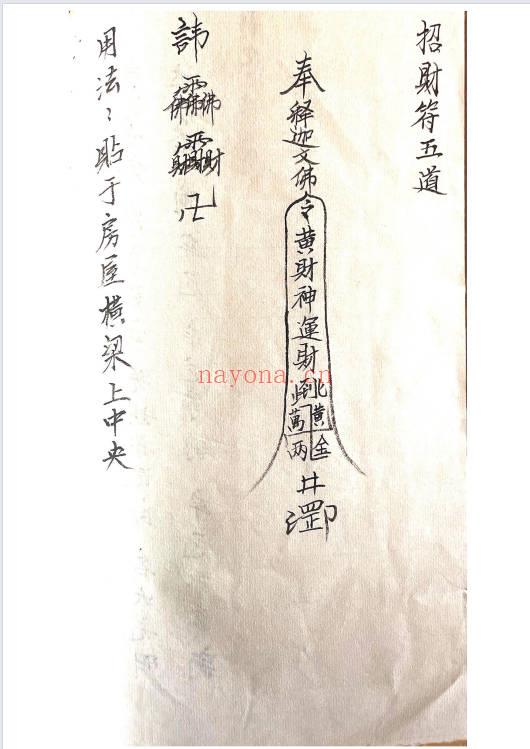 招財符五道
奉释迦文佛令黄財神運財到此
黄金萬两
井罡印
諱
卍
用法：貼于房屋横梁上中央
nayona.cn